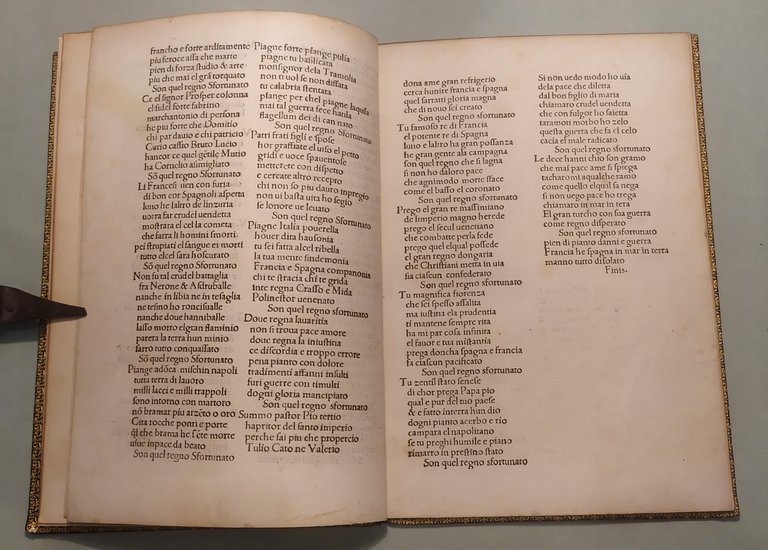 francho e forte arditamente
piu feroce assa che marte
pien di forza studio & arte
piu che mai el grã torquato
Son quel regno Sfortunato
Ce el signor Prosper colonna
el fidel forte fabritio
marchantonio di persona
he piu forte che Domitio
chi par dauto e chi patricio
Curio Cassio Bruto Lucio
hancor ce quel gẽtile Mutio
ha Cornelio asimigliato
Sõ quel regno Sfortunato
Li Francesi uen con furia
di bon cor Spagnoli aspetta
luno he laltro de linzuria
uorra far crudel uendetta
mostrara el cel la cometa
che farra li homini smorti
pei strupiati el sangue ei morti
tutto el cel sara hoscurato
Sõ quel regno Sfortunato
Non fu tal crudel battaglia
fra Nerone & Asdruballe
nanche in libia ne in tesaglia
ne tesino ho roncisualle
nanche doue hanniballe
lasso morto el gran flaminio
parera la terra hun minio
farro tutto conquassato
Sõ quel regno Sfortunato
Piange adõca mischin napoli
tutta terra di lauoro
milli lacci e milli trappoli
sono intorno con martoro
nõ bramar piu arzẽto o oro
Cita rocche ponti e porte
q̃l che brama he sẽte morte
uiue inpace da beato
Son quel regno Sfortunato
Piagne forte piange pulia
piagne tu basilicata
monsignor dela Tramolia
non ti uol se non disfatta
tu calabria stentata
piange per chel piagne laquila
mai tal guerra fece hatila
flagellum dei di can nato
Son quel regno Sfortunato
Patri frati figli e spose
hor graffiate el uiso el petto
gridi e uoce spauentose
metterete con dispetto
e cercate altro recepto
chi non so piu dauro inpregio
non ui basta uita ho segio
se lonore ue leuato
Son quel regno Sfortunato
Piagne Italia pouerella
houer dita hausonia
tu sei fatta alcel ribella
la tua mente sindemonia
Francia e Spagna companonia
chi te stracia chi te grida
inte regna Crasso e Mida
Polinestor uenenato
Son quel regno sfortunato
Doue regna lauaritia
non si troua pace amore
doue regna la iniustitia
ce discordia e troppo errore
pena pianto con dolore
tradimenti affanni insulti
furi guerre con timulti
dogni gloria mancipiato
Son quel regno sfortunato
Summo pastor Pio tertio
hapritor del santo imperio
perche sai piu che propercio
Tulio Cato ne Valerio
dona ame gran refrigerio
cerca hunire francia e spagna
quel sarratti gloria magna
che di nouo sei creato
Son quel regno sfortunato
Tu famoso re di Francia
el potente re di Spagna
luno e laltro ha gran possanza
he gran gente ala campagna
son quel regno che si lagna
si non ho daloro pace
che agnimodo morte fface
come el basso el coronato
Son quel regno sfortunato
Prego el gran re massimiano
de limperio magno herede
prego el fecul uenetiano
che combatte perla fede
prego quel elqual possede
el gran regno dongaria
che Christiani metta in uia
sia ciascun confederato
Son quel regno sfortunato
Tu magnifica fiorenza
che sei spesso assalita
ma iustitia ela prudentia
ti mantene sempre rita
ha mi par cosa infinita
el fauor e tua mistantia
prega doncha spagna e francia
fa ciascun pacificato
Son quel regno sfortunato
Tu zentil stato senese
di chor prega Papa pio
qual e pur del tuo paese
& e fatto interra hun dio
dogni pianto acerbo e rio
campara el napolitano
se tu preghi humile e piano
rimarro in prestino stato
Son quel regno sfortunato
Si non uedo modo ho uia
dela pace che diletta
dal bon figlio di maria
chiamaro crudel uendetta
che con fulgor ho saietta
taramoti morbo ho zelo
questa guerra che fa el celo
cacia el male radicato
Son quel regno sfortunato
Le dece hanni chio son gramo
che mai pace ame si spiega
tacharomi aqualche ramo
come quello elqual sa nega
si non uego pace ho trega
chiamato in mar in tera
El gran turcho con sua guerra
come regno disperato
Son quel regno sfortunato
pien di pianto danni e guerra
Francia he spagna in mar in terra
manno tutto disolato
Finis.